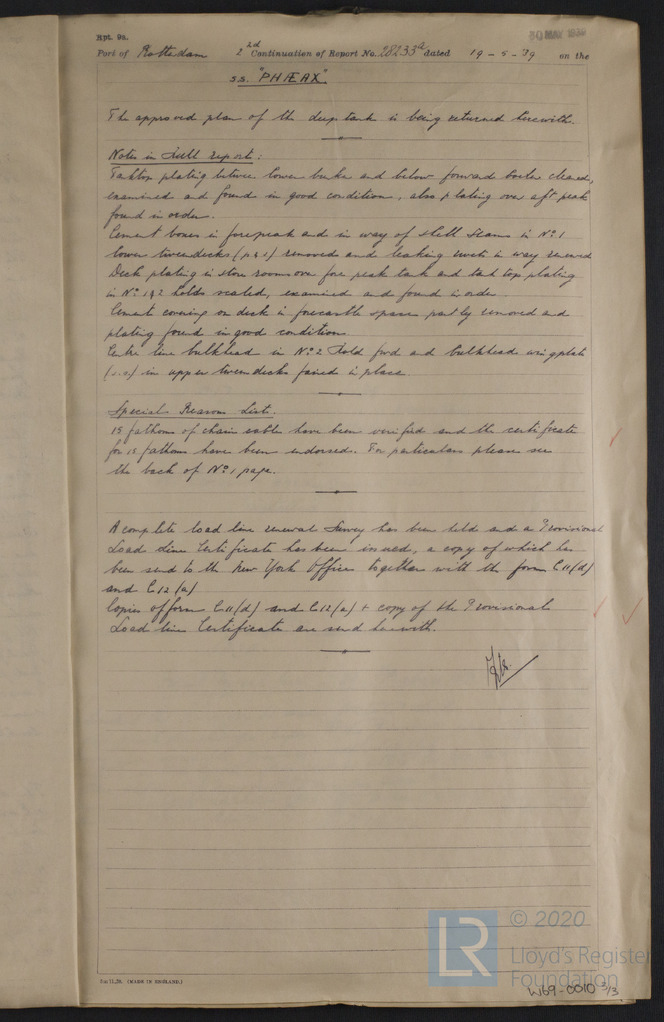 Rpt. 9a.
30 MAY 1939
Port of Rotterdam 2nd Continuation of Report No. 28233a dated 19 - 5 - 39 on the
S.S. "PHÆAX"
The approved plan of the deep tank is being returned herewith.
Notes in Hull report:
Tanktop plating between lower bunker and below forward boiler cleaned,
examined and found in good condition, also plating over aft peak
found in order.
Cement boxes in forepeak and in way of shell seams in No. 1
lower tweendecks (p.&s) removed and leaking rivets in way renewed
Deck plating in store rooms over fore peak tank and tank top plating
in No. 1 & 2 holds scaled, examined and found in order
Cement covering on deck in forecastle space partly removed and
plating found in good condition
Centre line bulkhead in No. 2 Hold fwd and bulkhead wingplate
in upper tweendecks faired in place.
Special Reasons List.
15 fathoms of chain cable have been verified and the certificate
for 15 fathoms have been endorsed. For particulars please see
the back of No. 1 page.
A complete load line renewal Survey has been held and a Provisional
Load Line Certificate has been issued, a copy of which has
been send to the New York Office together with the form C11(d)
and C12(a)
Copies of form C11(d) and C12(a) + copy of the Provisional
Load line Certificate are send herewith.
(MADE IN ENGLAND.)
LR
© 2020
Lloyd's Register
Foundation
W69-0010 3/3